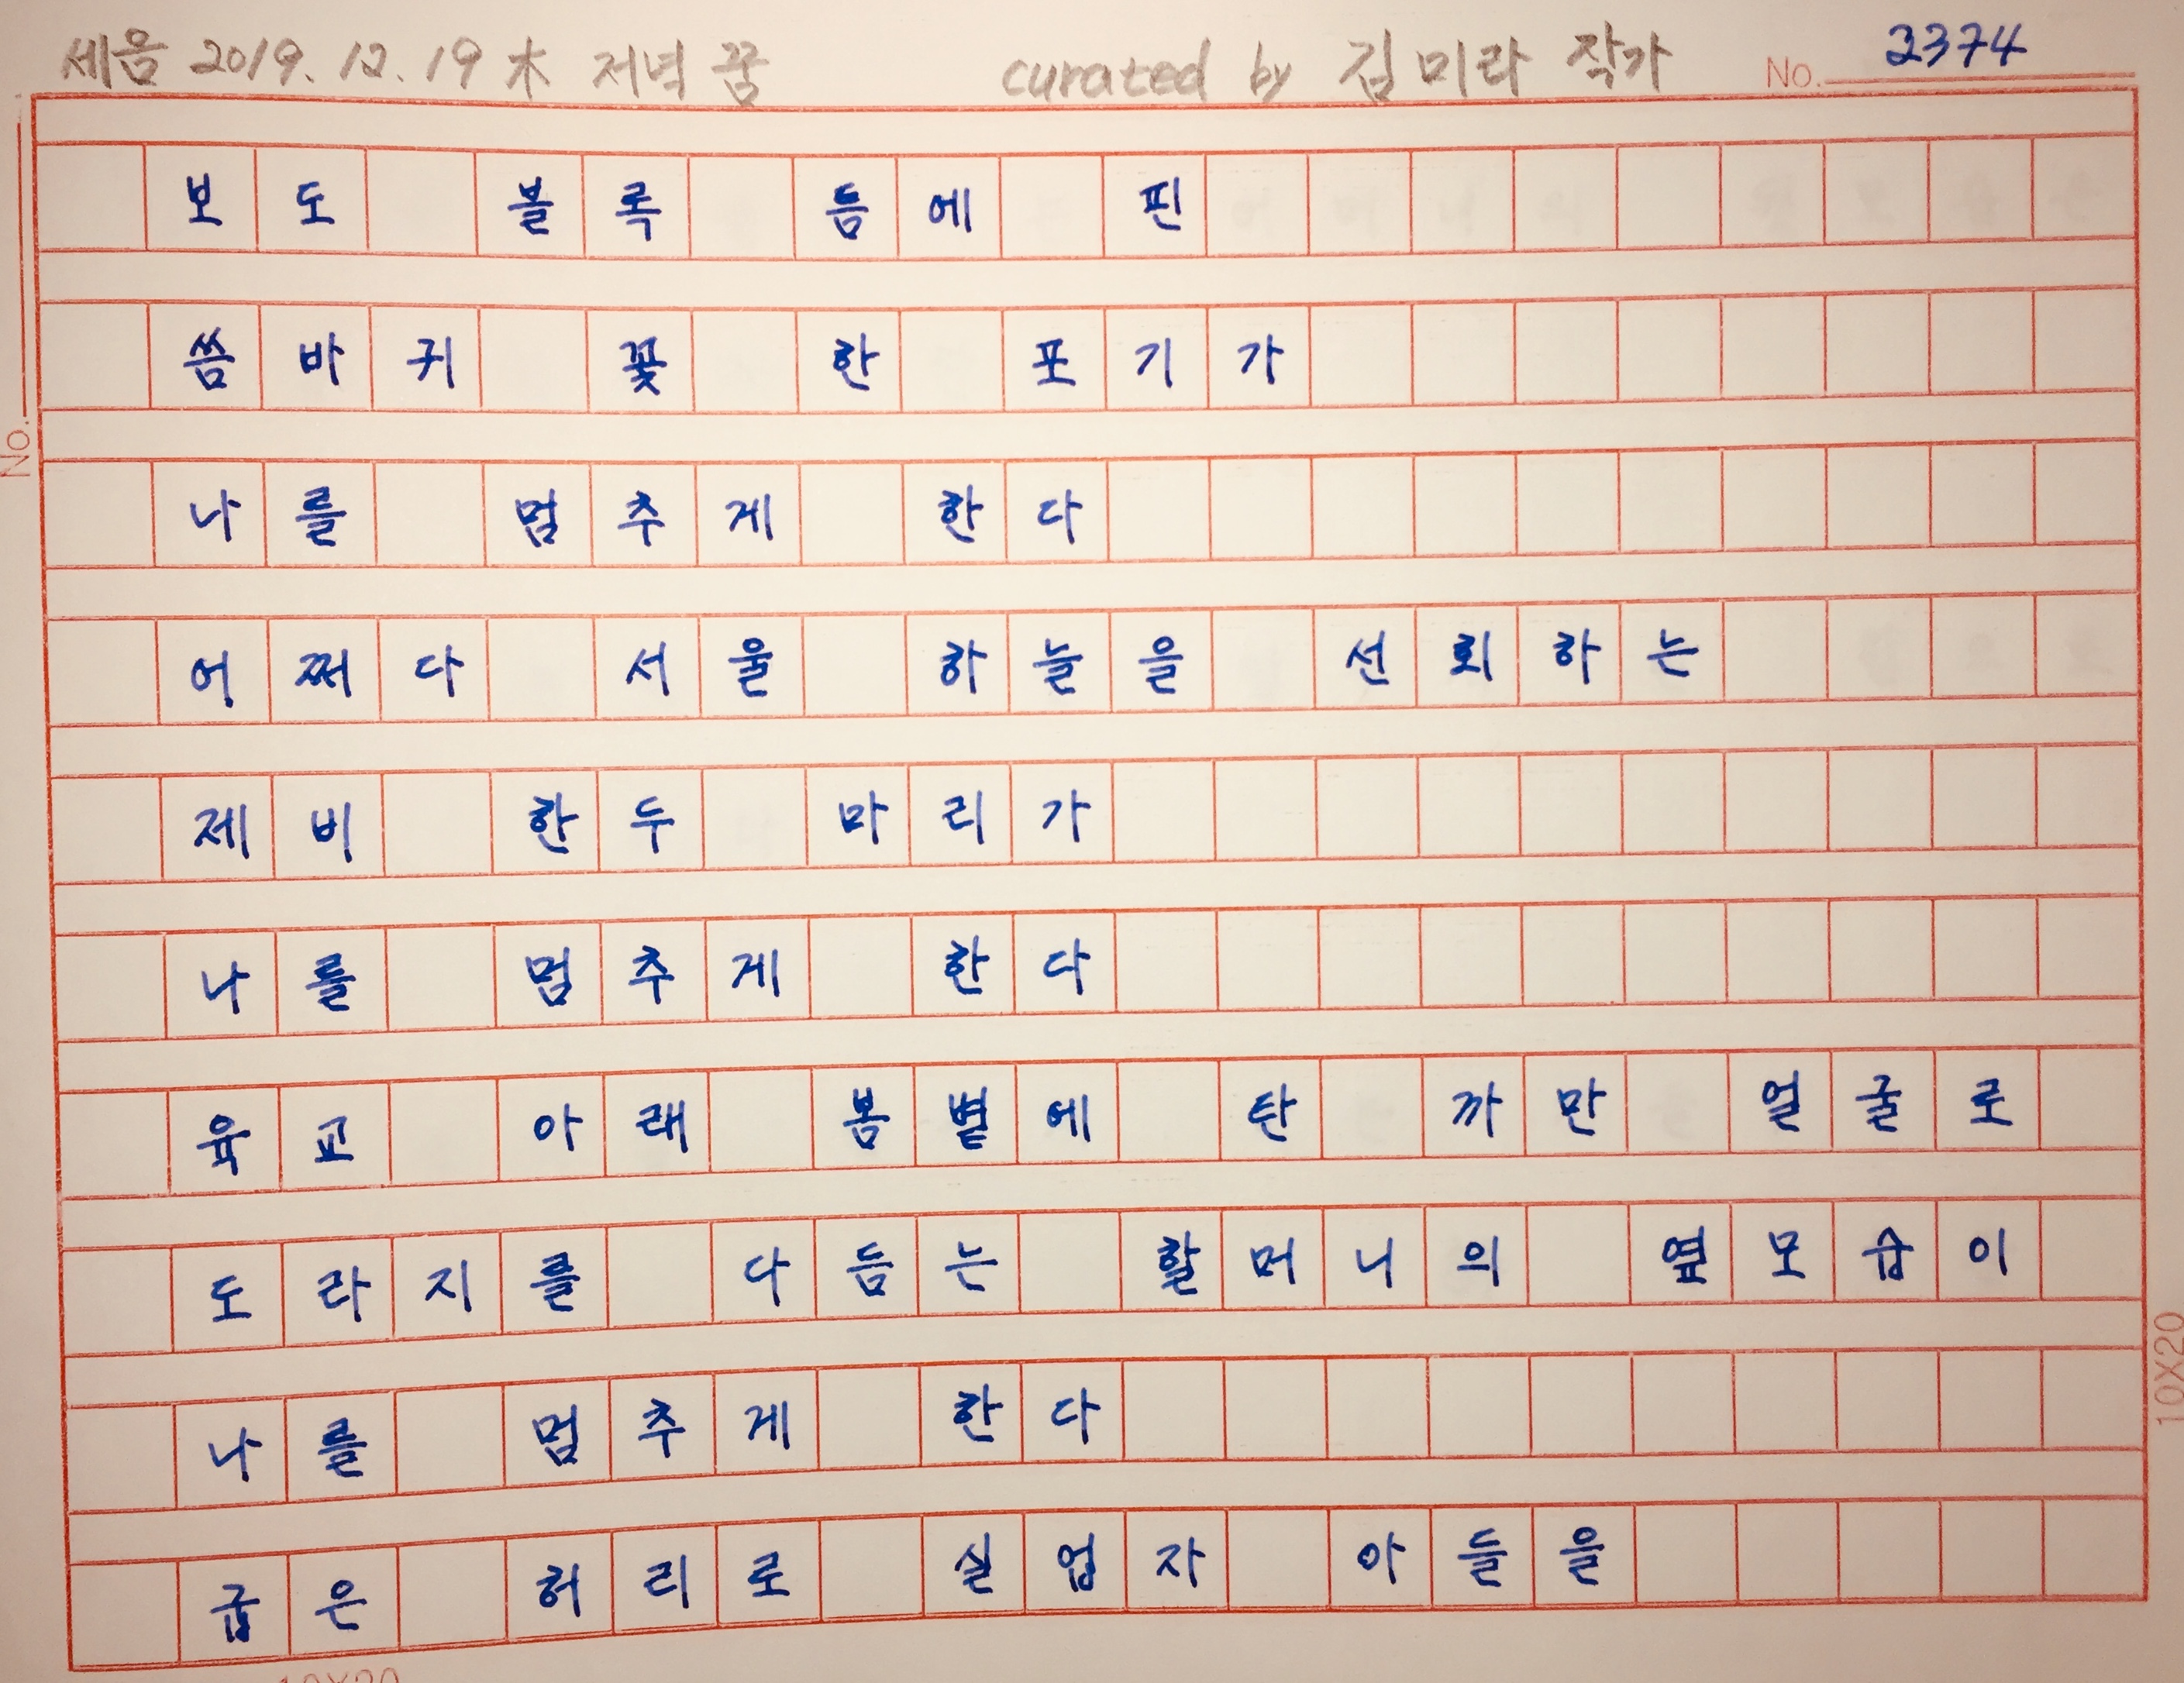 세음 2019. 12. 19 木 저녁 꿈 curated by 김미라 작가 No. 2374
보도 블록 틈에 핀
씀바귀 꽃 한 포기가
나를 멈추게 한다
어쩌다 서울 하늘을 선회하는
제비 한두 마리가
나를 멈추게 한다
육교 아래 봄볕에 탄 까만 얼굴로
도라지를 다듬는 할머니의 옆모습이
나를 멈추게 한다
굽은 허리로 실업자 아들을
No.
10X20
10X20